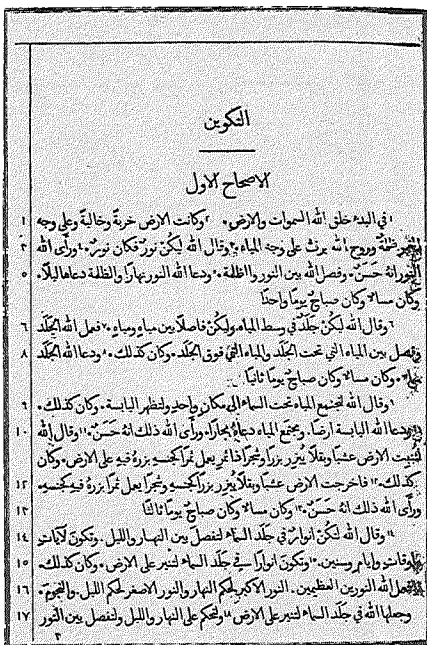 التكوين
الاصحاح الاول
١ في البدء خلق الله السموات والارض. ٢ وكانت الارض خربةً وخاليةً وعلى وجه
الغمر ظلمةٌ وروح الله يرفّ على وجه المياه. ٣ وقال الله ليكُنْ نورٌ فكان نورٌ. ٤ ورأى الله
النور انهُ حَسَنٌ. وفصل الله بين النور والظلمة. ٥ ودعا الله النور نهارًا والظلمة دعاها ليلًا.
وكان مساءٌ وكان صباحٌ يومًا واحدًا
٦ وقال الله ليكُنْ جَلَدٌ في وسط المياه. وليكُنْ فاصلًا بين مياهٍ ومياهٍ. ٧ فعمل الله الجَلَدَ
وفصل بين المياه التي تحت الجَلَد والمياه التي فوق الجَلَد. وكان كذلك. ٨ ودعا الله الجَلَد
سماءً. وكان مساءٌ وكان صباحٌ يومًا ثانيًا
٩ وقال الله لتجتمع المياه تحت السماء الى مكان واحد ولتظهر اليابسة. وكان كذلك.
١٠ ودعا الله اليابسة ارضًا. ومجتمع المياه دعاهُ بحارًا. ورأى الله ذلك انهُ حَسَنٌ. ١١ وقال الله
لتُنبت الارض عشبًا وبقلًا يُبزِر بزرًا وشجرًا ذا ثمرٍ يعمل ثمرًا كجنسهِ بزرهُ فيهِ على الارض. وكان
كذلك. ١٢ فاخرجت الارض عشبًا وبقلًا يُبزِر بزرًا كجنسهِ وشجرًا يعمل ثمرًا بزرهُ فيهِ كجنسهِ.
ورأى الله ذلك انهُ حَسَنٌ. ١٣ وكان مساءٌ وكان صباحٌ يومًا ثالثًا
١٤ وقال الله لتكُنْ انوارٌ في جَلَد السماء لتفصل بين النهار والليل. وتكون لآياتٍ
واوقاتٍ وايامٍ وسنين. ١٥ وتكون انوارًا في جَلَد السماء لتنير على الارض. وكان كذلك.
١٦ فعمل الله النورين العظيمين. النور الاكبر لحكم النهار والنور الاصغر لحكم الليل. والنجومَ.
١٧ وجعلها الله في جَلَد السماء لتنير على الارض ١٨ ولتحكم على النهار والليل ولتفصل بين النور
٣